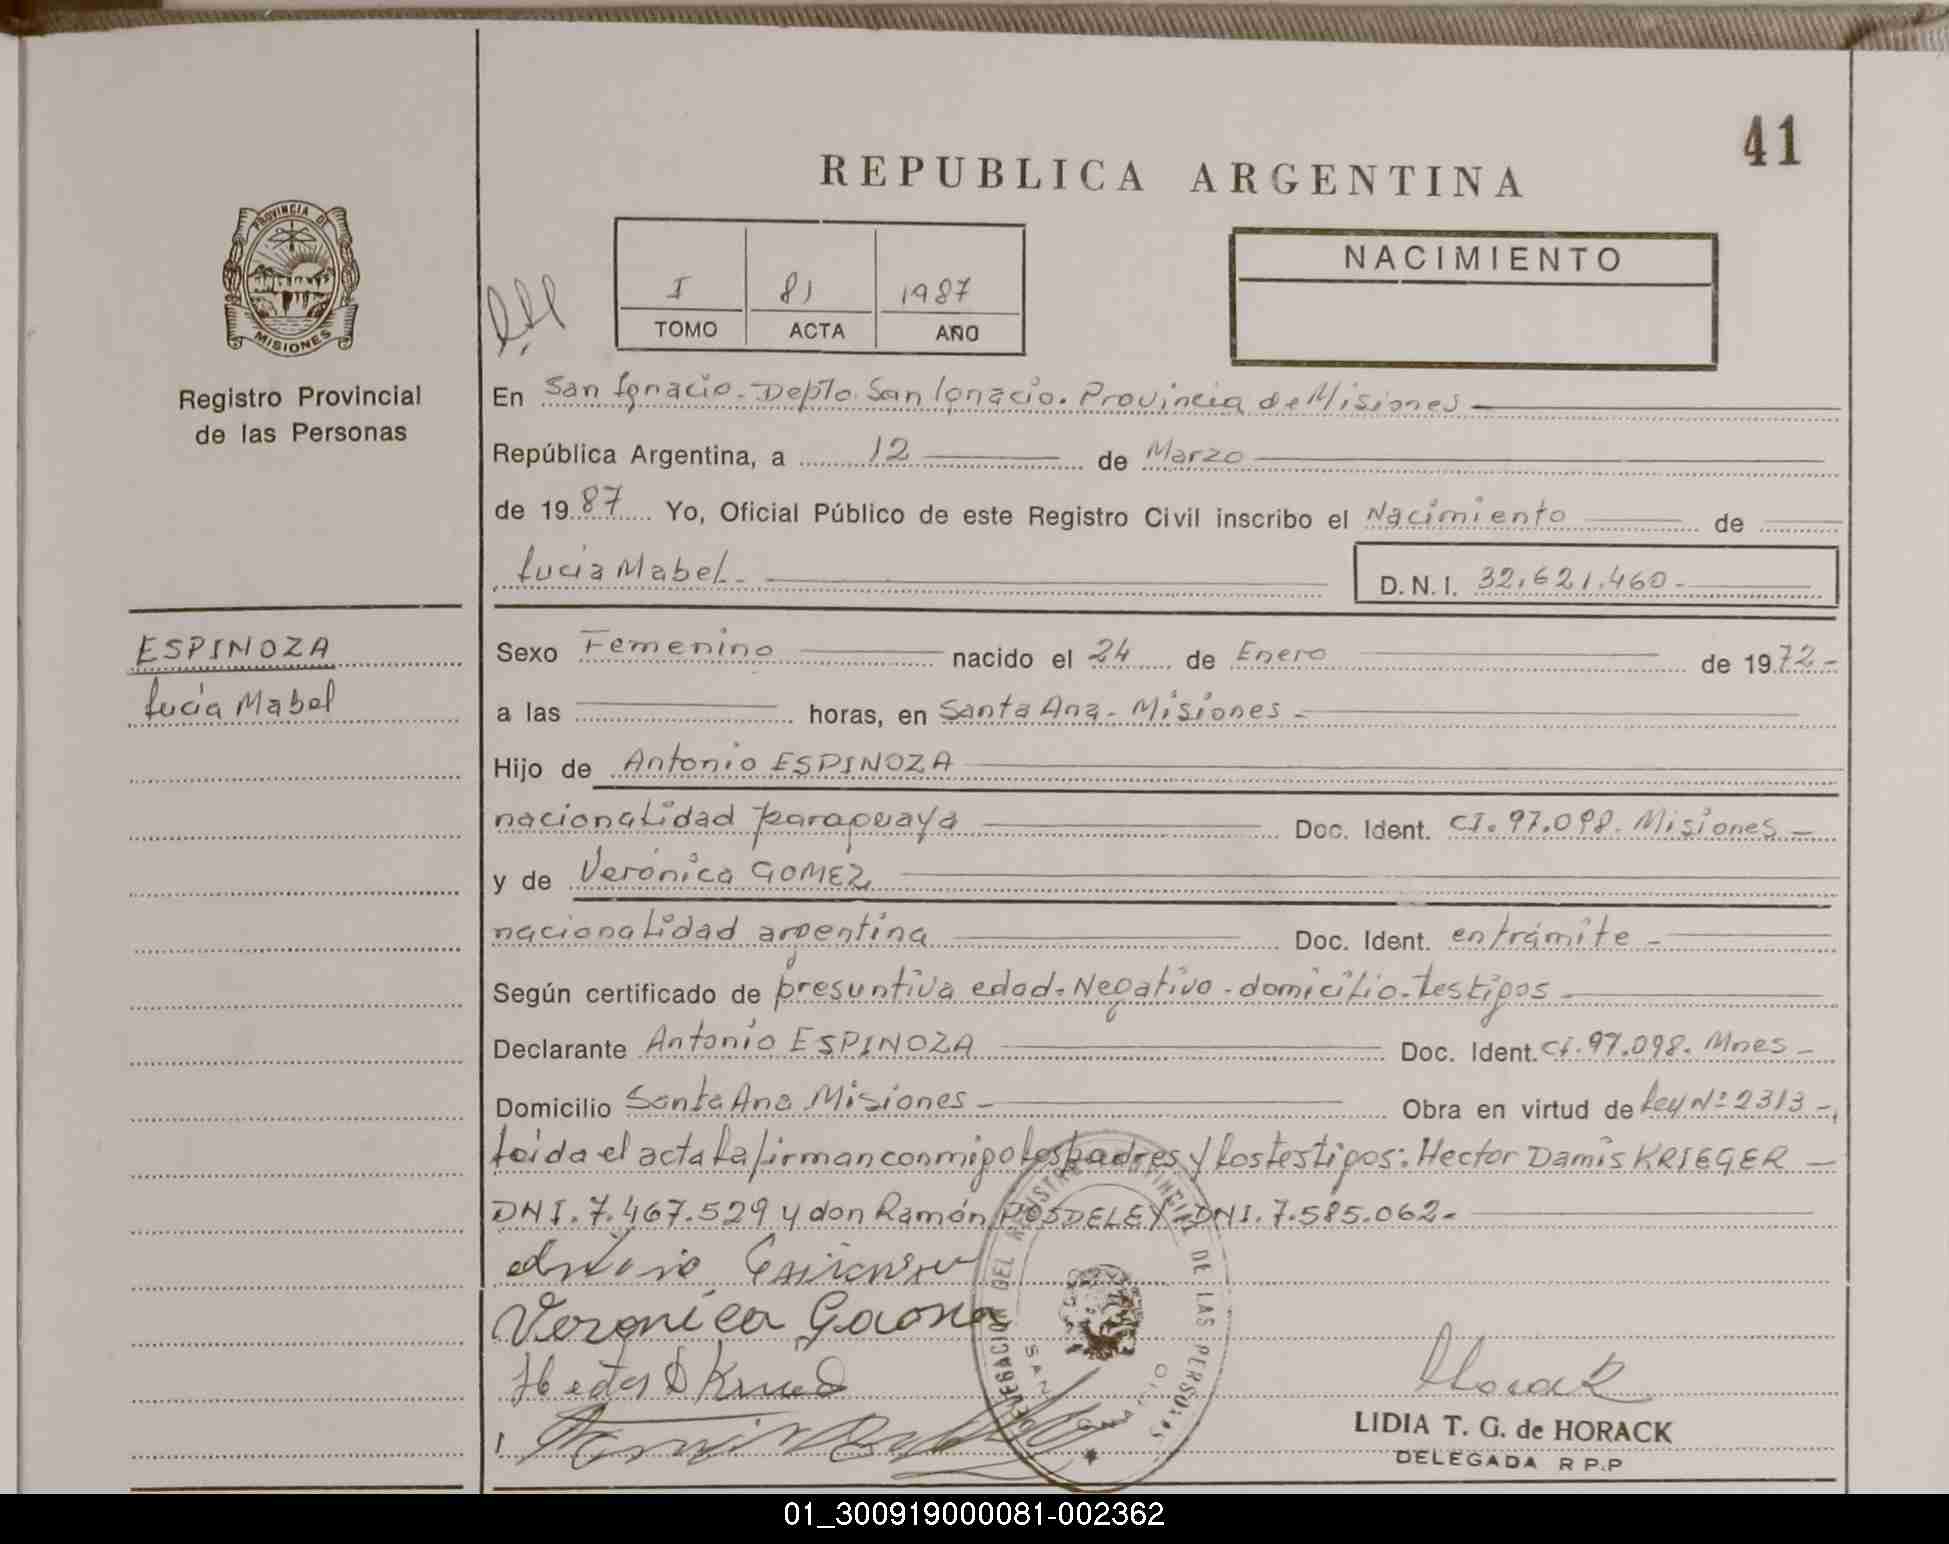 41
REPUBLICA ARGENTINA
PROVINCIA DE
MISIONES
Registro Provincial
de las Personas
I 81 1987
TOMO ACTA AÑO
NACIMIENTO
En San Ignacio. Depto. San Ignacio. Provincia de Misiones
República Argentina, a 12 de Marzo
de 1987 Yo, Oficial Público de este Registro Civil inscribo el Nacimiento de
Lucia Mabel.
D.N.I. 32.621.460.
ESPINOZA
Lucía Mabel
Sexo Femenino nacido el 24 de Enero de 1972.
a las horas, en Santa Ana. Misiones.
Hijo de Antonio ESPINOZA
nacionalidad paraguaya Doc. Ident. CI. 97.098. Misiones
y de Verónica GOMEZ
nacionalidad argentina Doc. Ident. en trámite
Según certificado de presuntiva edad. Negativo. domicilio. testigos
Declarante Antonio ESPINOZA Doc. Ident. CI. 97.098. Mnes
Domicilio Santa Ana Misiones Obra en virtud de Ley Nº 2313
Leída el acta la firman conmigo los padres y los testigos: Hector Damis KRIEGER
DNI. 7.467.529 y don Ramón POSDELEY DNI. 7.585.062.
Veronica Gaona
DELEGACION DEL REGISTRO PROVINCIAL DE LAS PERSONAS
SAN IGNACIO
Horack
LIDIA T. G. de HORACK
DELEGADA R P.P
01_300919000081-002362